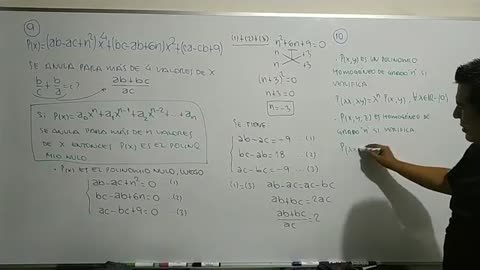 9
P(x)=(ab-ac+n²)x⁴+(bc-ab+6n)x²+(ca-cb+9)
SE ANULA PARA MÁS DE 4 VALORES DE X
b/c + b/a = ¿?
ab+bc/ac
Si P(x)=a₀xⁿ+a₁xⁿ⁻¹+a₂xⁿ⁻²+...+aₙ
SE ANULA PARA MÁS DE n VALORES
DE X ENTONCES P(x) ES EL POLINO
MIO NULO
• P(x) ES EL POLINOMIO NULO, LUEGO
ab-ac+n²=0 (1)
bc-ab+6n=0 (2)
ac-bc+9=0 (3)
(1)+(2)+(3)
n²+6n+9=0
n 3
n 3
(n+3)²=0
n+3=0
n=-3
SE TIENE:
ab-ac=-9 (1)
bc-ab=18 (2)
ac-bc=-9 ...(3)
(1)=(3) ab-ac=ac-bc
ab+bc=2ac
ab+bc/ac=2
10
• P(x,y) ES UN POLINOMIO
HOMOGÉNEO DE GRADO "n" SI
VERIFICA
P(λx,λy)=λⁿP(x,y), ∀λ∈ℝ-{0}
• P(x,y,z) ES HOMOGÉNEO DE
GRADO "n" SI VERIFICA
P(λx